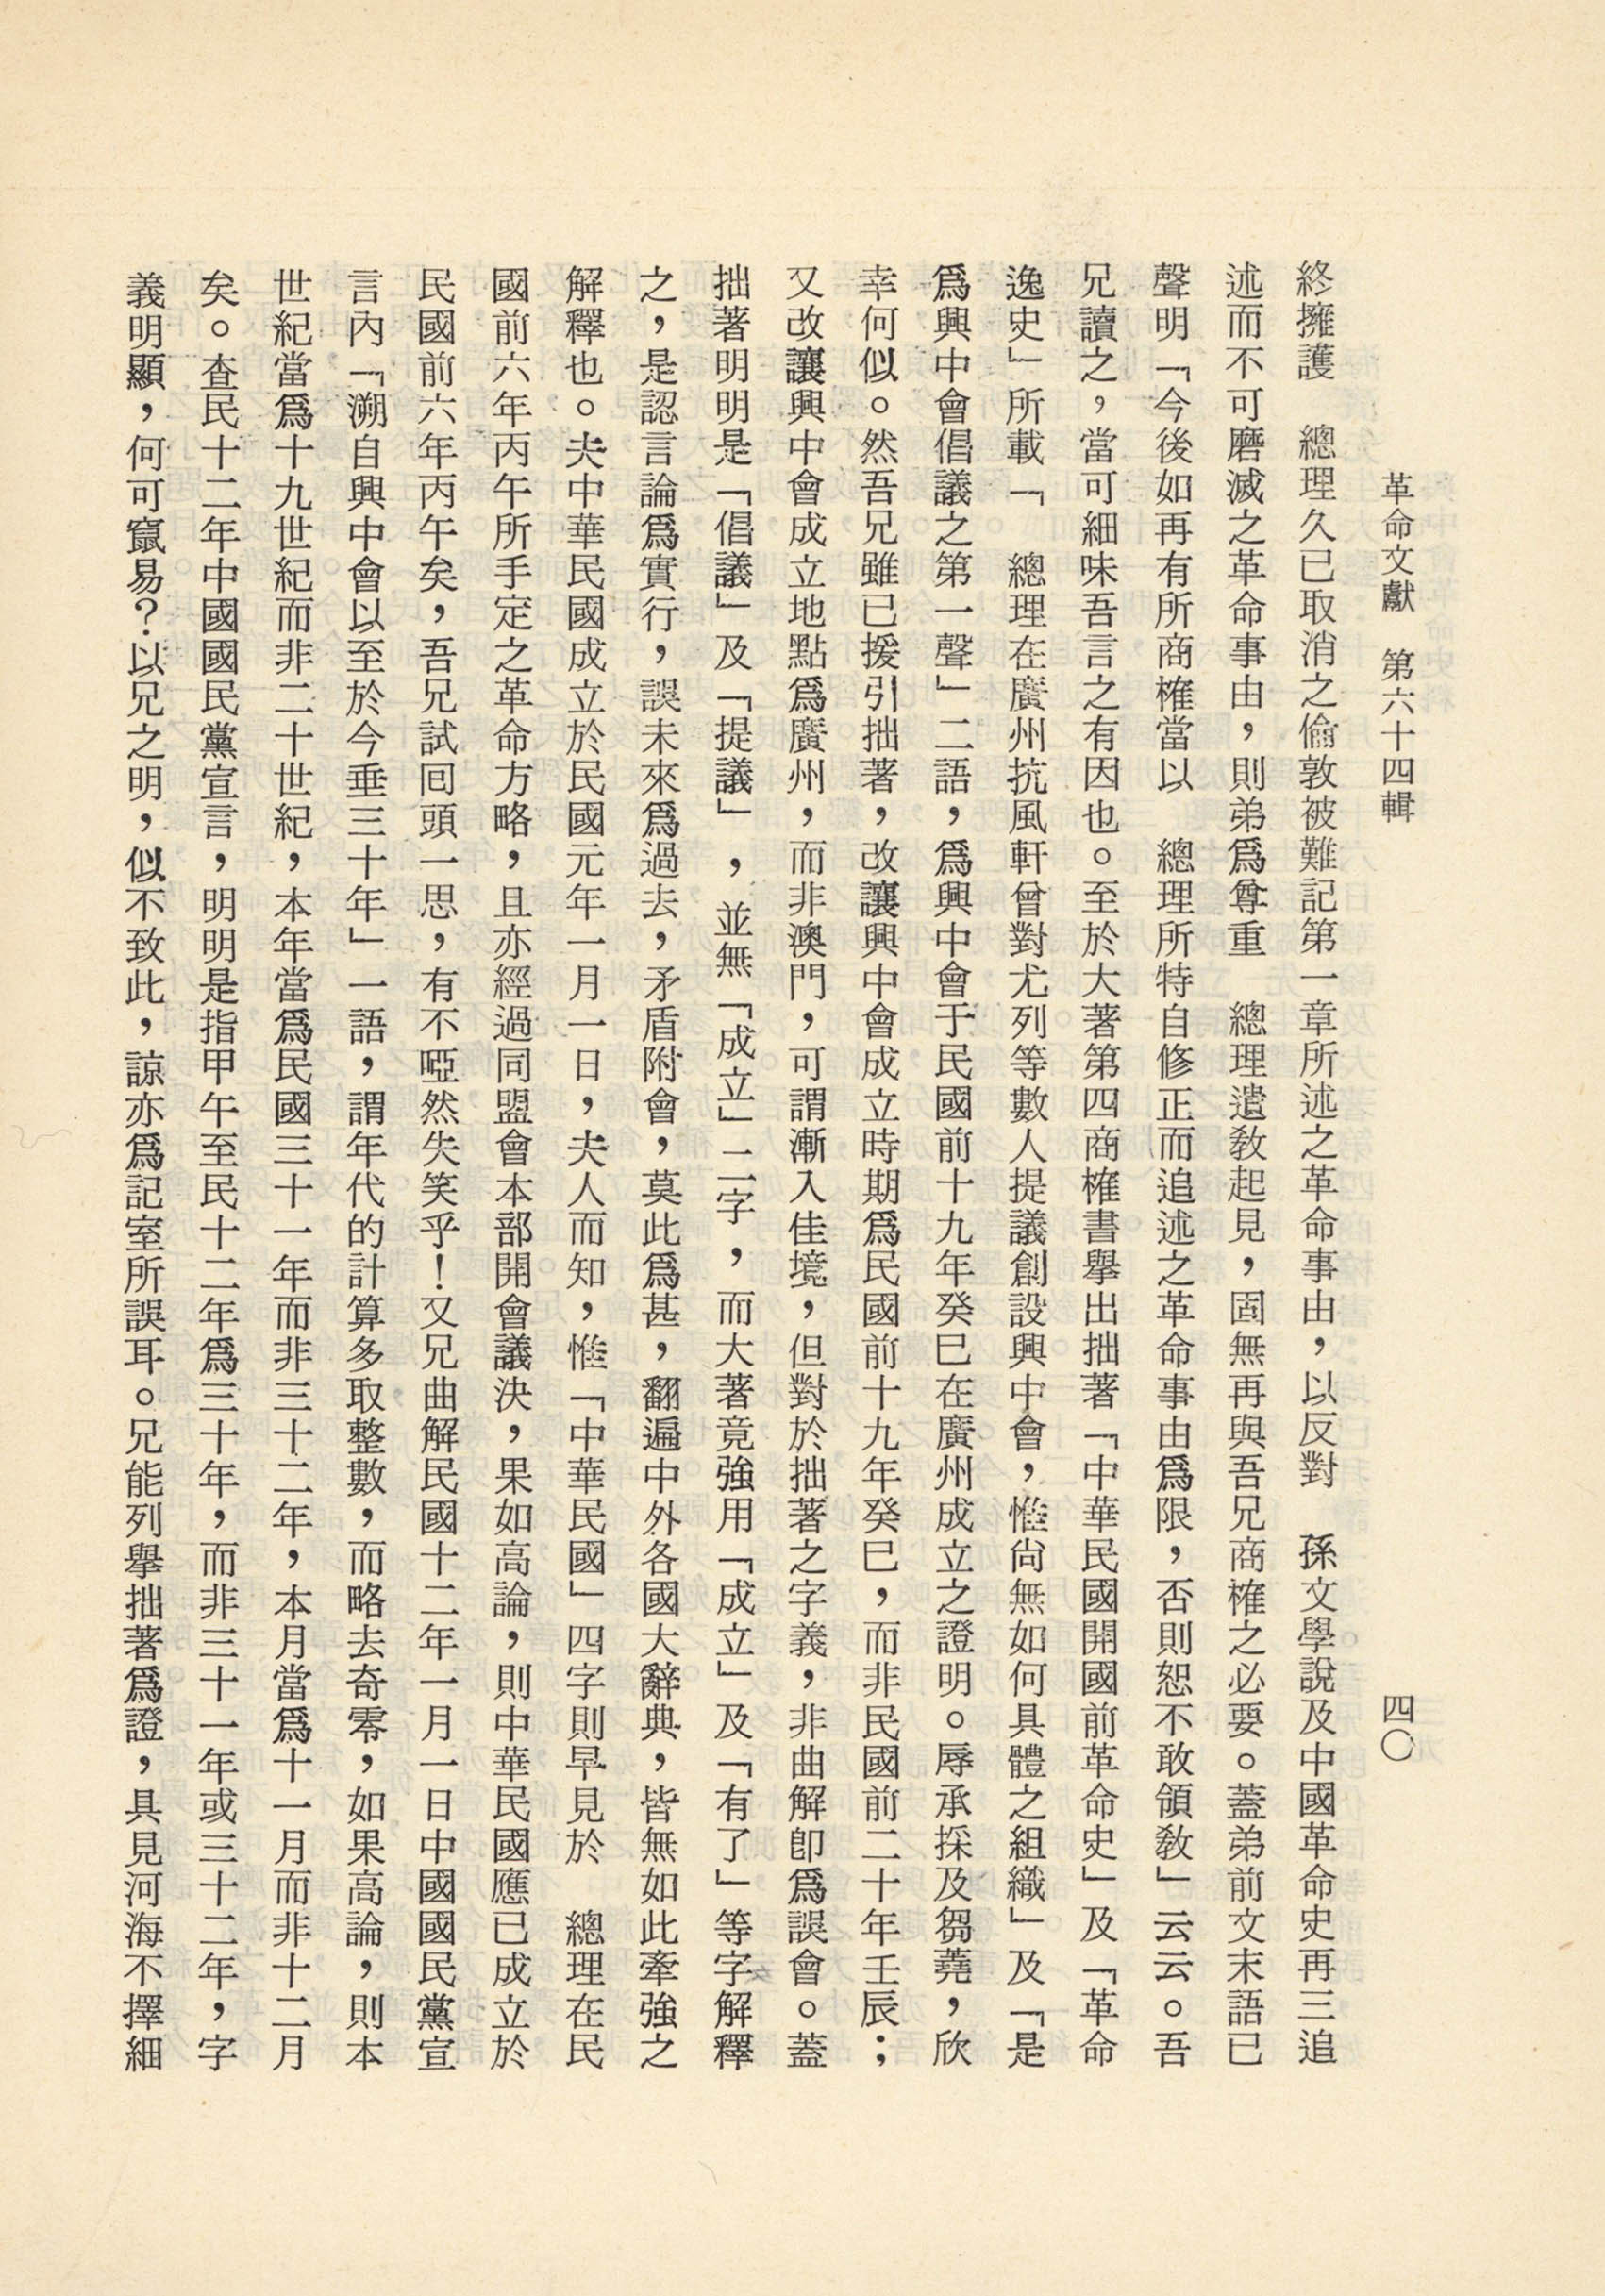 革命文獻　第六十四輯　四〇
終擁護　總理久已取消之倫敦被難記第一章所述之革命事由，以反對　孫文學說及中國革命史再三追
述而不可磨滅之革命事由，則弟爲尊重　總理遺敎起見，固無再與吾兄商榷之必要。蓋弟前文末語已
聲明「今後如再有所商榷當以　總理所特自修正而追述之革命事由爲限，否則恕不敢領敎」云云。吾
兄讀之，當可細味吾言之有因也。至於大著第四商榷書舉出拙著「中華民國開國前革命史」及「革命
逸史」所載「　總理在廣州抗風軒曾對尤列等數人提議創設興中會，惟尙無如何具體之組織」及「是
爲興中會倡議之第一聲」二語，爲興中會于民國前十九年癸巳在廣州成立之證明。辱承採及芻蕘，欣
幸何似。然吾兄雖已援引拙著，改讓興中會成立時期爲民國前十九年癸巳，而非民國前二十年壬辰；
又改讓興中會成立地點爲廣州，而非澳門，可謂漸入佳境，但對於拙著之字義，非曲解卽爲誤會。蓋
拙著明明是「倡議」及「提議」，並無「成立」二字，而大著竟強用「成立」及「有了」等字解釋
之，是認言論爲實行，誤未來爲過去，矛盾附會，莫此爲甚，翻遍中外各國大辭典，皆無如此牽強之
解釋也。夫中華民國成立於民國元年一月一日，夫人而知，惟「中華民國」四字則早見於　總理在民
國前六年丙午所手定之革命方略，且亦經過同盟會本部開會議決，果如高論，則中華民國應已成立於
民國前六年丙午矣，吾兄試回頭一思，有不啞然失笑乎！又兄曲解民國十二年一月一日中國國民黨宣
言內「溯自興中會以至於今垂三十年」一語，謂年代的計算多取整數，而略去奇零，如果高論，則本
世紀當爲十九世紀而非二十世紀，本年當爲民國三十一年而非三十二年，本月當爲十一月而非十二月
矣。查民十二年中國國民黨宣言，明明是指甲午至民十二年爲三十年，而非三十一年或三十二年，字
義明顯，何可竄易？以兄之明，似不致此，諒亦爲記室所誤耳。兄能列舉拙著爲證，具見河海不擇細